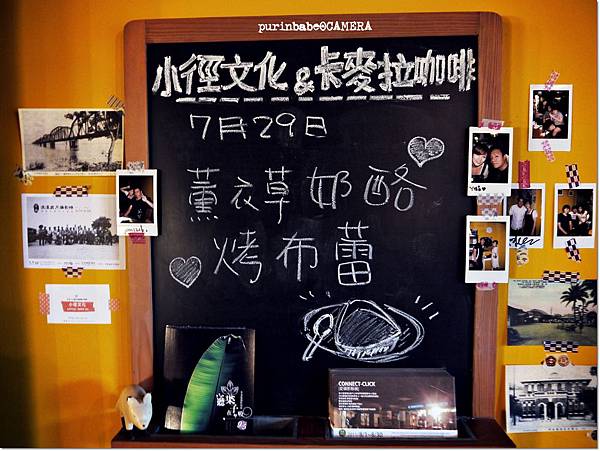 purinbabe@CAMERA
小徑文化&卡麥拉咖啡
7月29日
薰衣草奶酪
烤布蕾
小徑文化
CONNECT-CLICK